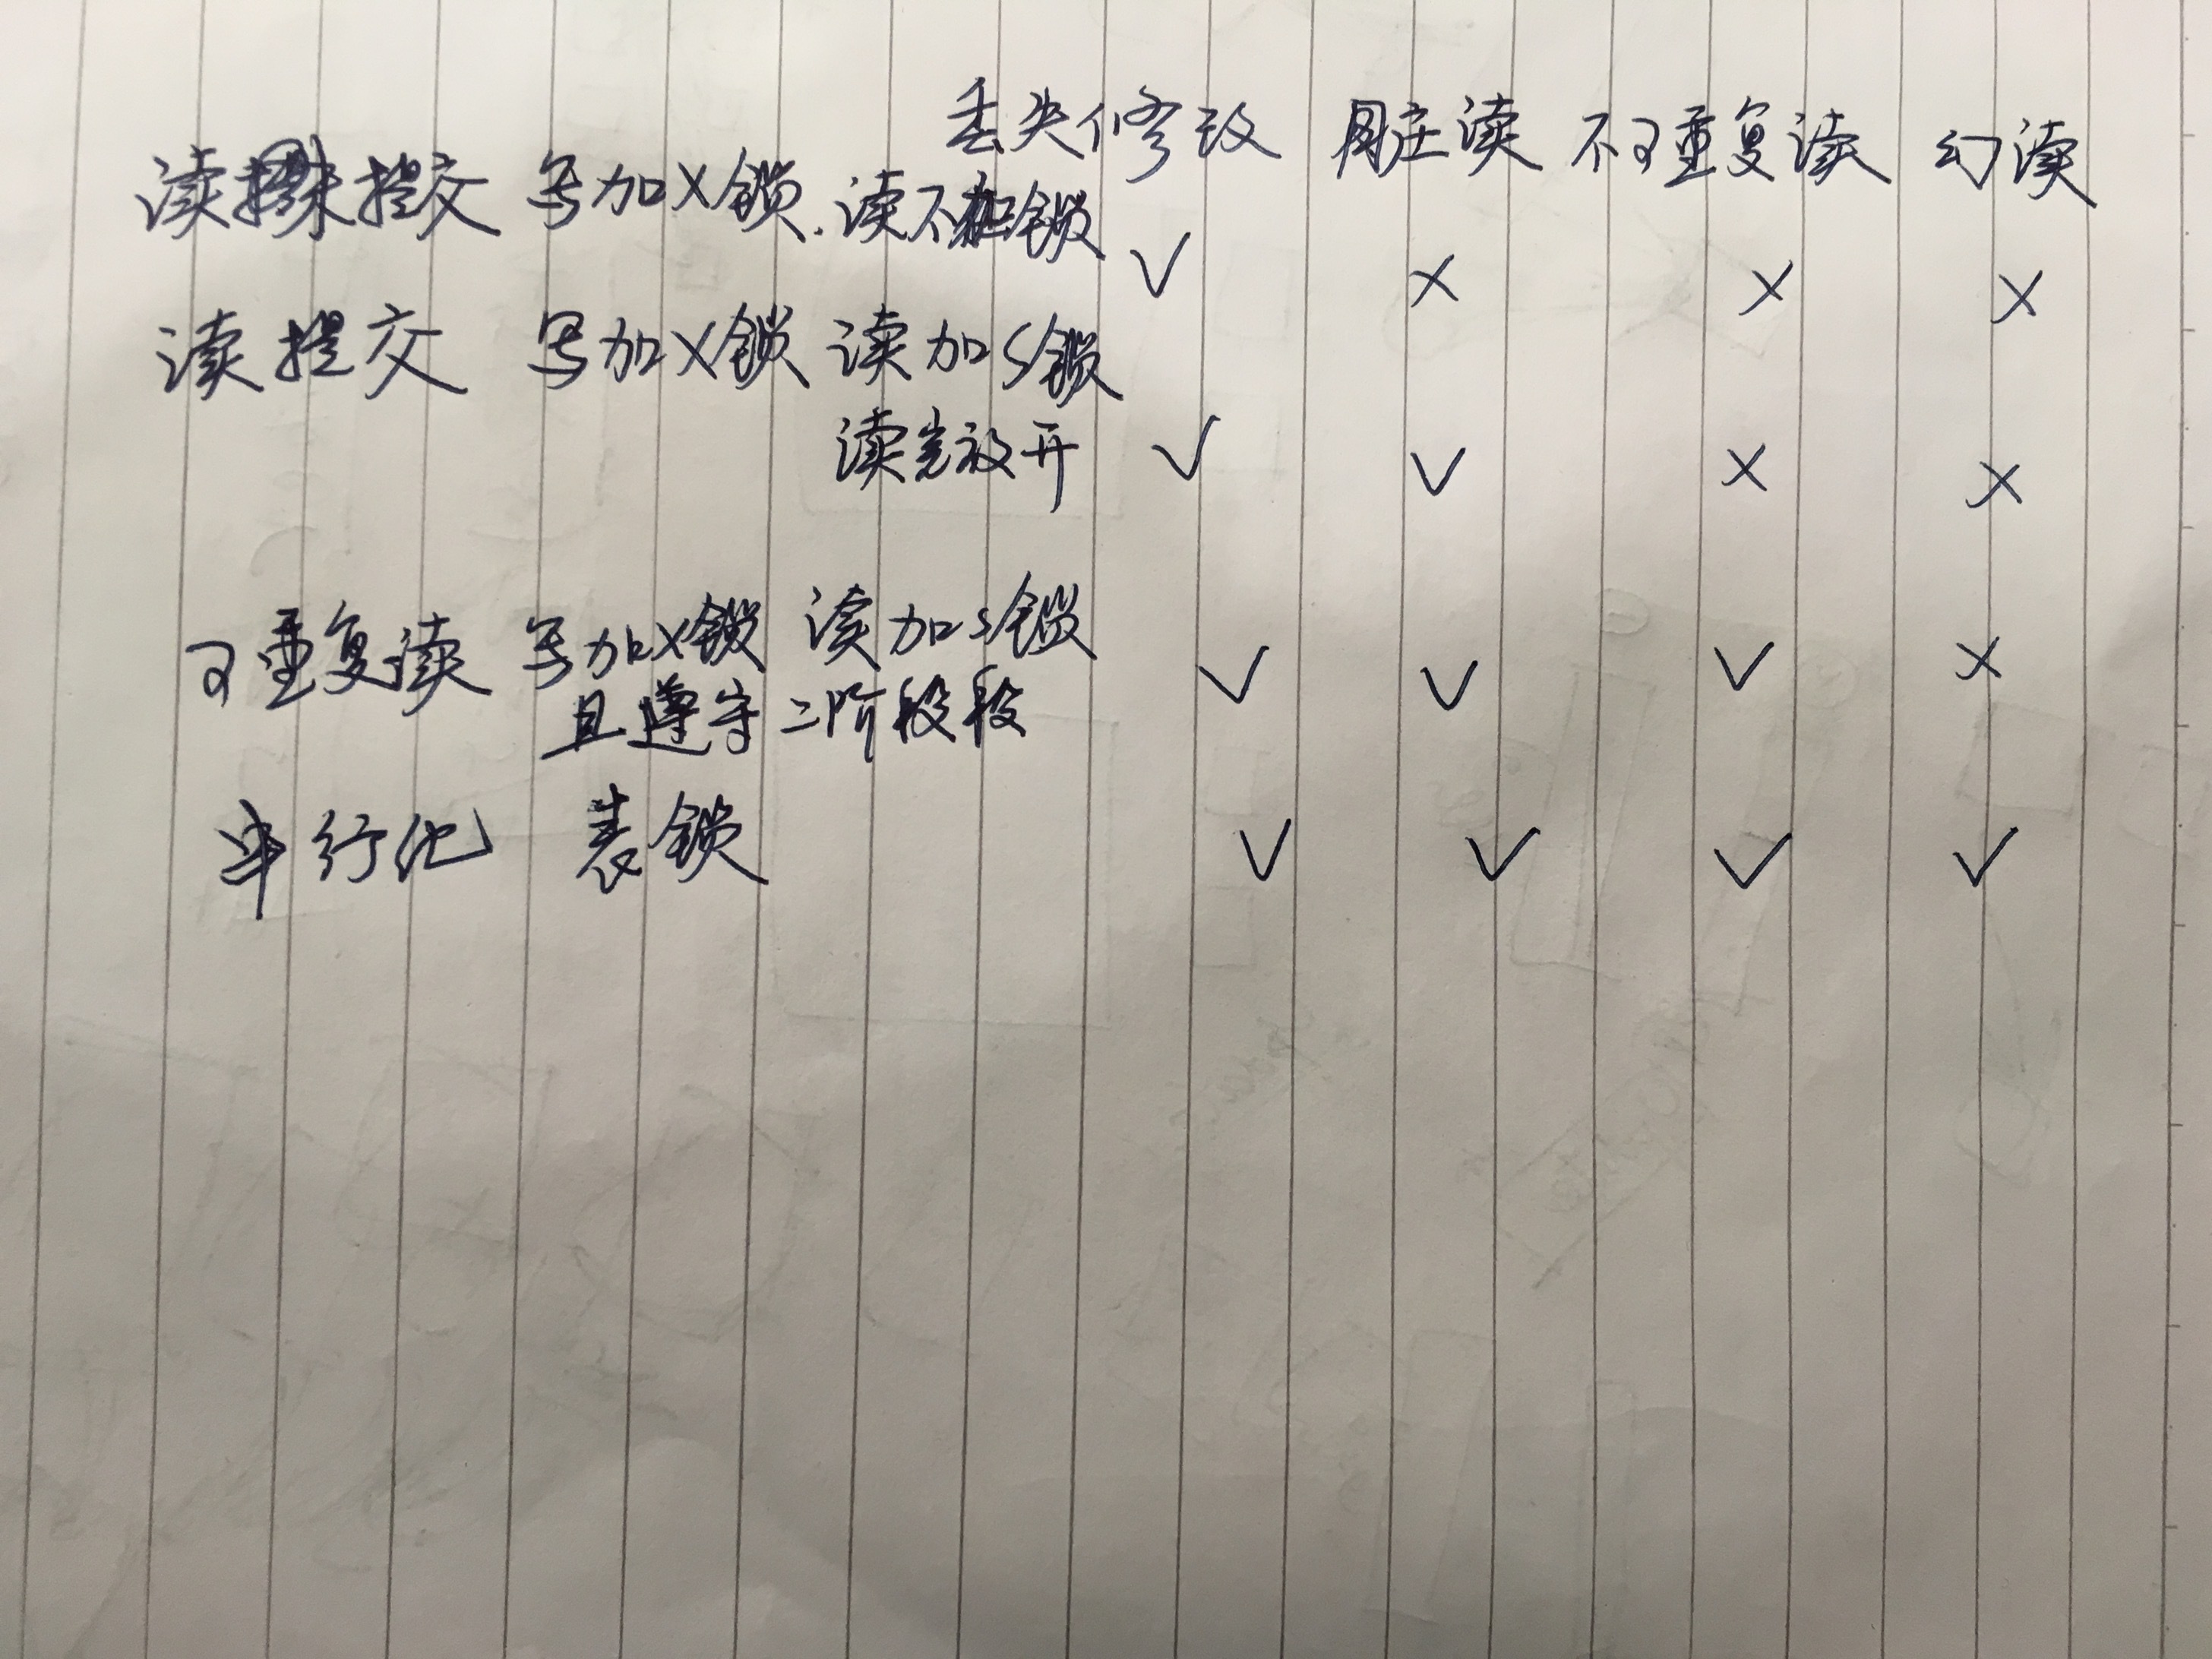 丢失修改 脏读 不可重复读 幻读
读未提交 写加X锁.读不加锁 √ × × ×
读提交 写加X锁 读加S锁
读完放开 √ √ × ×
可重复读 写加X锁 读加S锁 √ √ √ ×
且遵守二阶段段
串行化 表锁 √ √ √ √